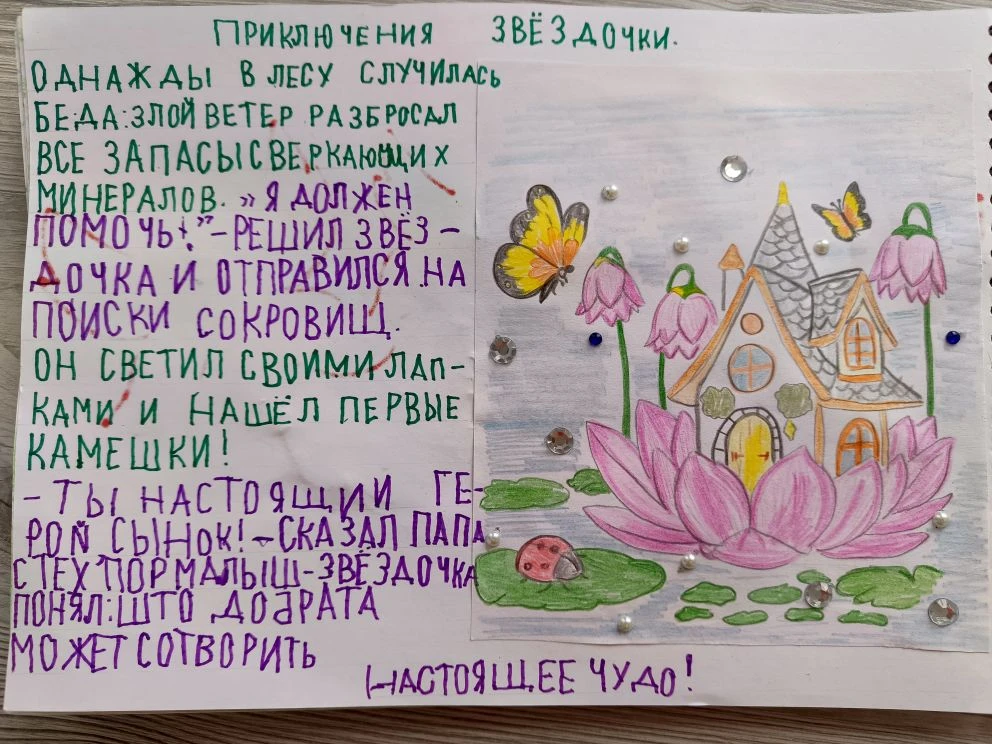 ПРИКЛЮЧЕНИЯ ЗВЁЗДОЧКИ.
ОДНАЖДЫ В ЛЕСУ СЛУЧИЛАСЬ
БЕДА: ЗЛОЙ ВЕТЕР РАЗБРОСАЛ
ВСЕ ЗАПАСЫ СВЕРКАЮЩИХ
МИНЕРАЛОВ. „Я ДОЛЖЕН
ПОМОЧЬ!" – РЕШИЛ ЗВЁЗ–
ДОЧКА И ОТПРАВИЛСЯ НА
ПОИСКИ СОКРОВИЩ.
ОН СВЕТИЛ СВОИМИ ЛАП–
КАМИ И НАШЁЛ ПЕРВЫЕ
КАМЕШКИ!
– ТЫ НАСТОЯЩИЙ ГЕ–
РОЙ СЫНОК! – СКАЗАЛ ПАПА
С ТЕХ ПОР МАЛЫШ–ЗВЁЗДОЧКА
ПОНЯЛ: ШТО ДОБРАТА
МОЖЕТ СОТВОРИТЬ
НАСТОЯЩЕЕ ЧУДО!